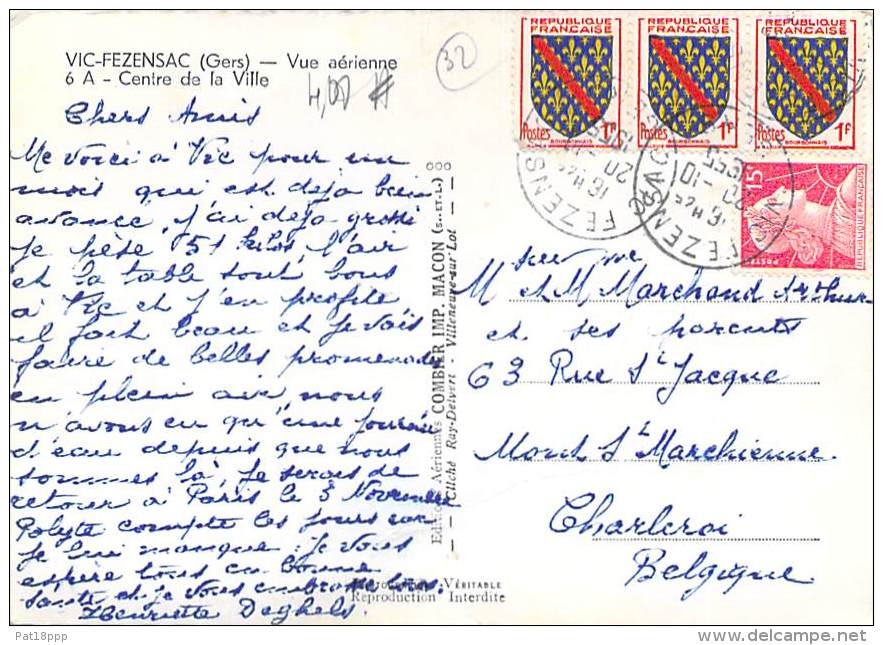 VIC-FEZENSAC (Gers) — Vue aérienne
6 A - Centre de la Ville
4,00
32
REPUBLIQUE FRANÇAISE
Postes 1F
BOURBONNAIS
REPUBLIQUE FRANÇAISE
Postes 1F
BOURBONNAIS
REPUBLIQUE FRANÇAISE
Postes 1F
BOURBONNAIS
15F
REPUBLIQUE FRANÇAISE
POSTES
FEZENSAC
Chers Amis
Me voici à Vic pour un
mois qui est déjà bien
avancé, j'ai déjà grossi
je pèse 51 kilos, l'air
et la table sont bons
à Vic et j'en profite
il fait beau et je vais
faire de belles promenades
en plein air, nous
n'avons eu qu'une journée
d'eau depuis que nous
sommes là, je serais de
retour à Paris le 3 Novembre
Polyte compte les jours car
je lui manque. je vous
espère tous en bonne
santé et je vous embrasse tous.
Henriette Deghels
Editions Aériennes COMBIER IMP. MACON (S.-ET-L.)
Cliché Ray-Delvert - Villeneuve-sur-Lot
VÉRITABLE
Reproduction Interdite
M et M Marchand Arthur
et ses parents
63 Rue St Jacque
Mont St Marchienne
Charleroi
Belgique
Pat18ppp
www.delcampe.net